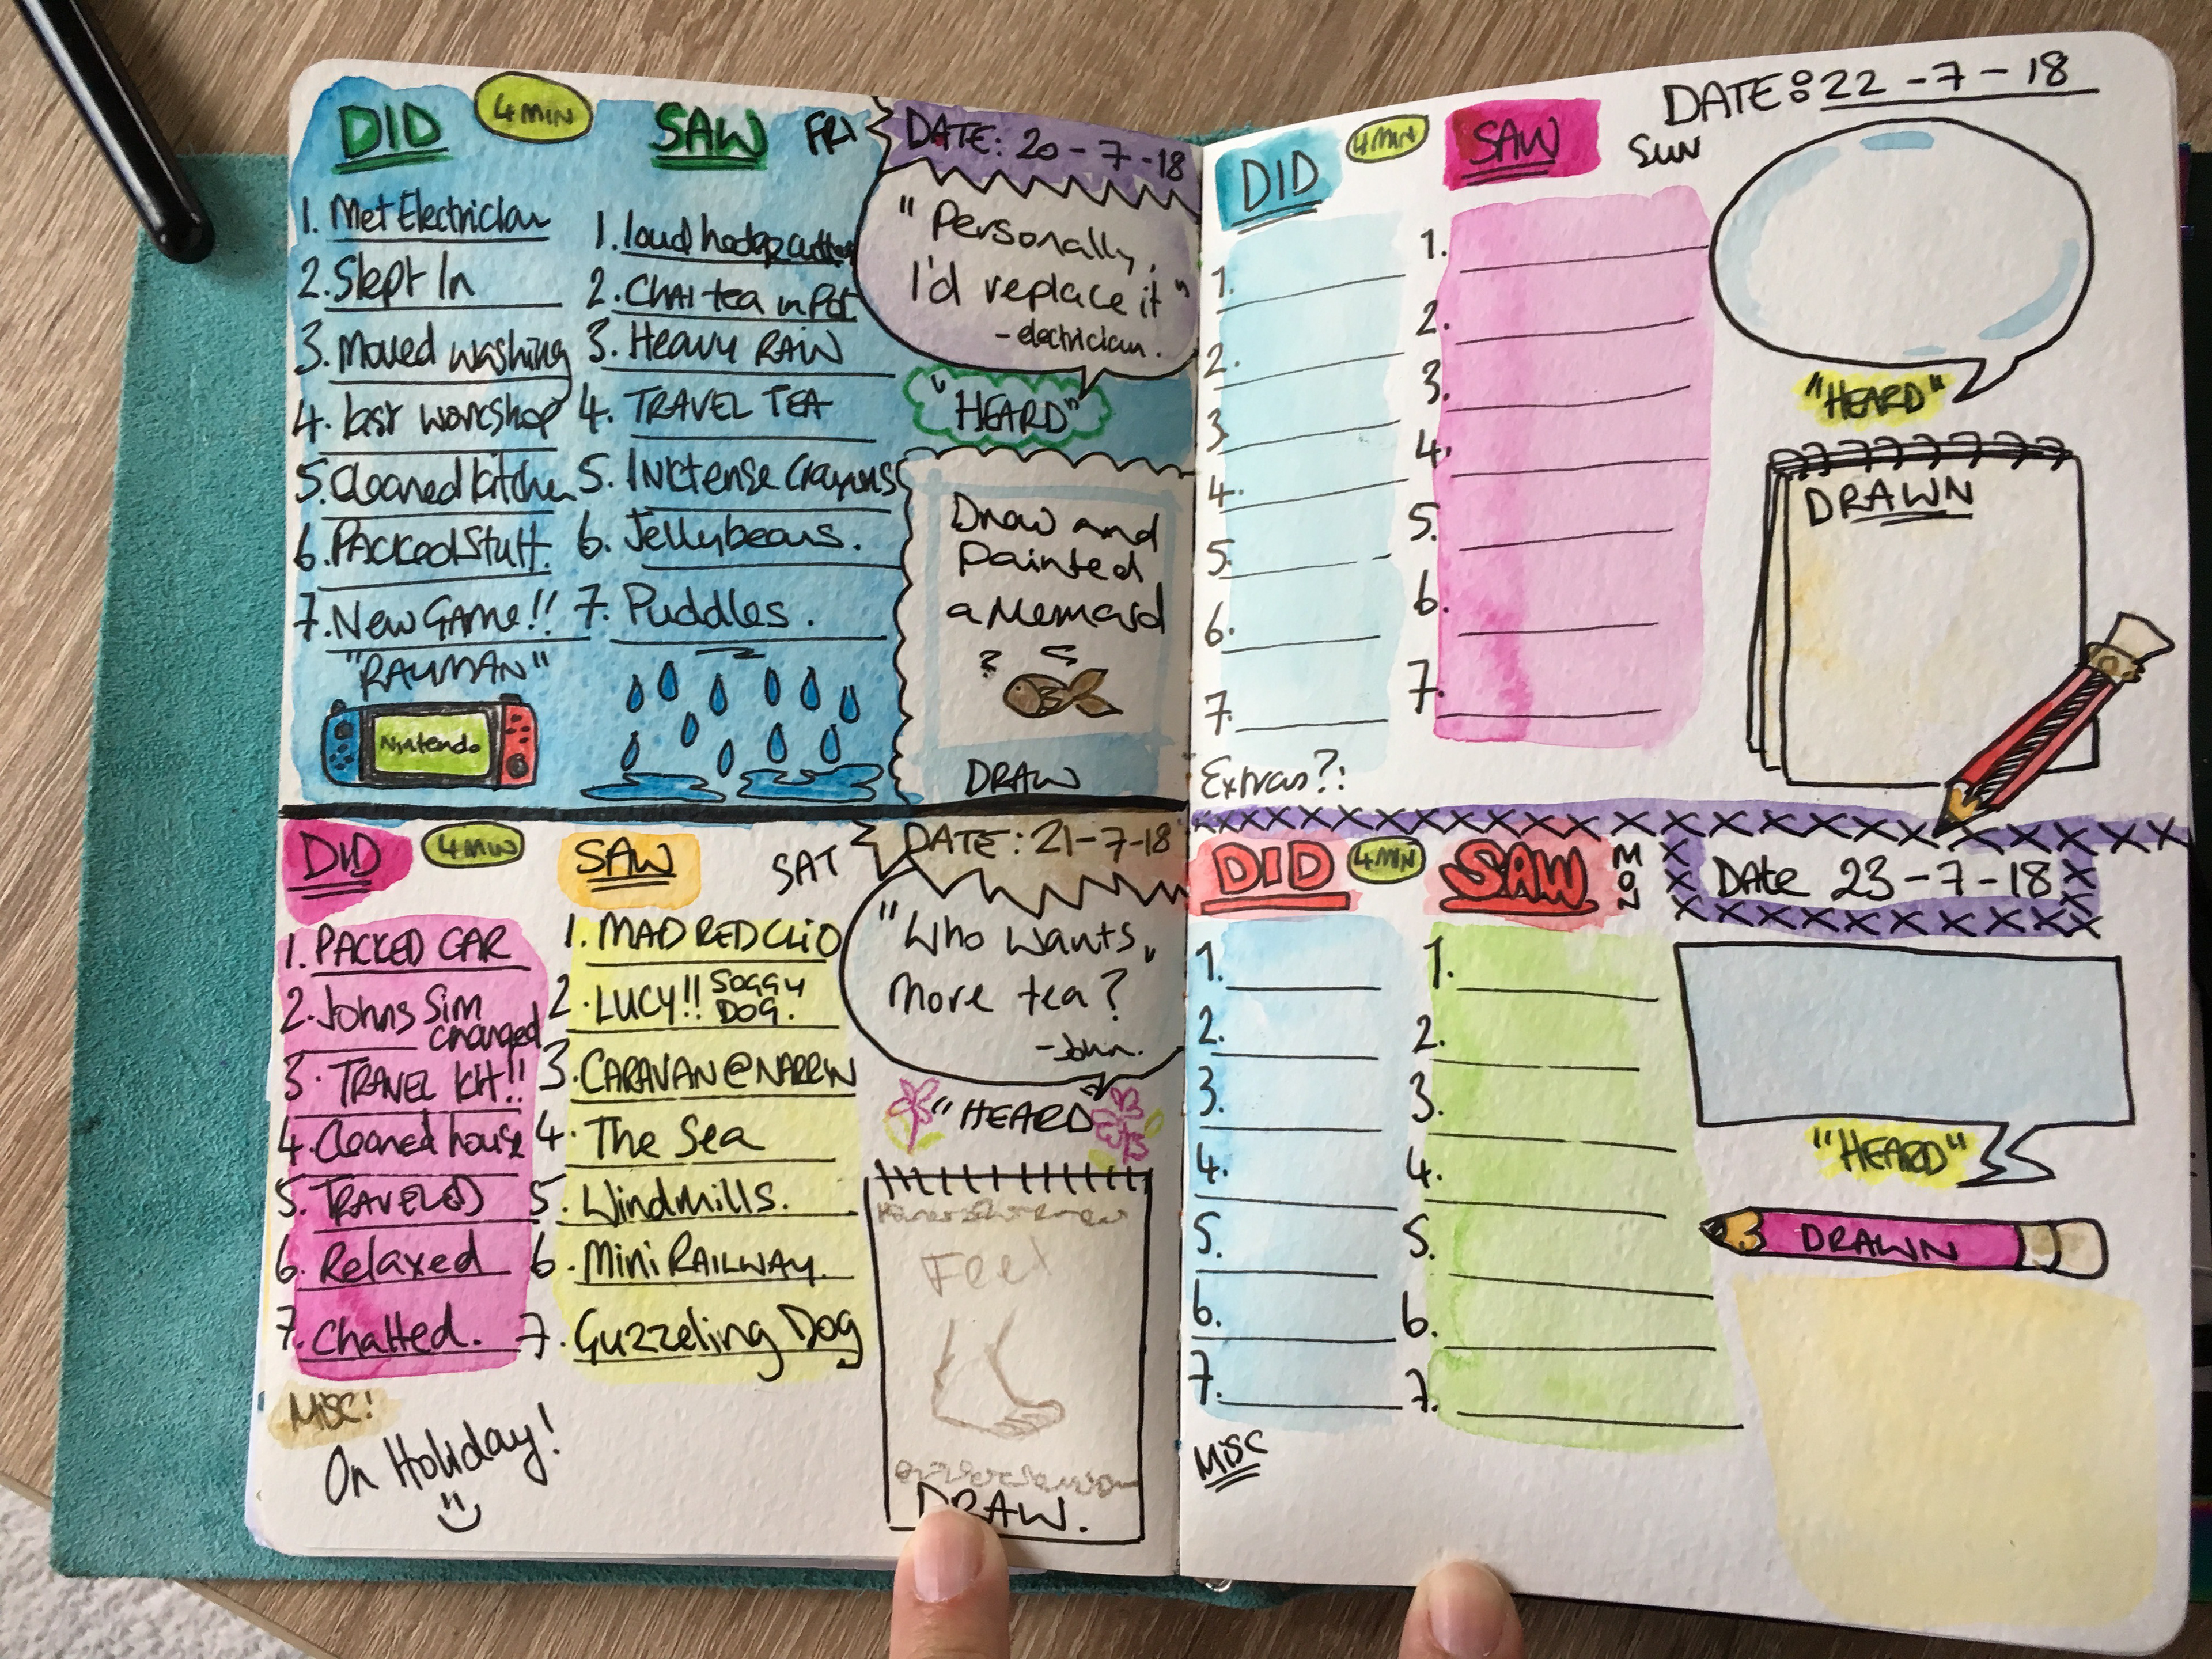 DID
4 MIN
SAW
FRI
DATE: 20-7-18
1. Met Electrician
2. Slept In
3. Moved washing
4. last workshop
5. Cleaned kitchen
6. Packed Stuff.
7. New Game!!
"RAYMAN"
Nintendo
1. loud hedge cutter
2. CHAI tea in Pot
3. Heavy RAIN
4. TRAVEL TEA
5. Inktense Crayons
6. Jellybeans.
7. Puddles.
"Personally,
I'd replace it"
- electrician.
"HEARD"
Draw and
Painted
a Mermaid
?
DRAW
DID
4 MIN
SAW
SAT
DATE: 21-7-18
1. PACKED CAR
2. Johns Sim
changed
3. TRAVEL KIT!!
4. Cleaned house
5. TRAVELED
6. Relaxed
7. Chatted.
MISC!
On Holiday!
1. MAD RED CLIO
2. LUCY!! SOGGY
DOG.
3. CARAVAN @
4. The Sea
5. Windmills.
6. Mini RAILWAY.
7. Guzzeling Dog
"Who wants
More tea?"
- John.
"HEARD"
Feet
DRAW.
DATE: 22-7-18
DID
4 MIN
SAW
SUN
1.
2.
3.
4.
5.
6.
7.
Extras?:
1.
2.
3.
4.
5.
6.
7.
"HEARD"
DRAWN
DID
4 MIN
SAW
MON
Date 23-7-18
1.
2.
3.
4.
5.
6.
7.
MISC
1.
2.
3.
4.
5.
6.
7.
"HEARD"
DRAWN